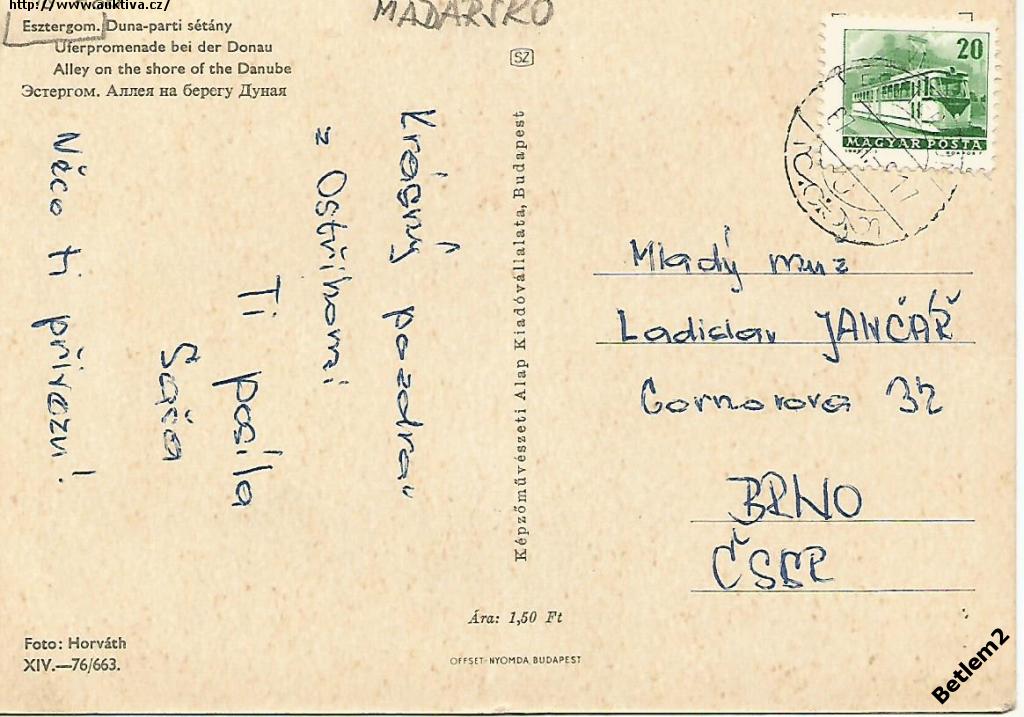 http://www.auktiva.cz/
MAĎARSKO
Esztergom. Duna-parti sétány
Uferpromenade bei der Donau
Alley on the shore of the Danube
Эстергом. Аллея на берегу Дуная
SZ
20
MAGYAR POSTA
Krásný pozdrav
z Ostřihomi
Ti posílá
Saša
Něco ti přivezu!
Képzőművészeti Alap Kiadóvállalata, Budapest
Mladý muž
Ladislav JANČAŘ
Cornovova 32
BRNO
ČSSR
Ára: 1,50 Ft
Foto: Horváth
XIV.—76/663.
OFFSET-NYOMDA, BUDAPEST
Betlem2